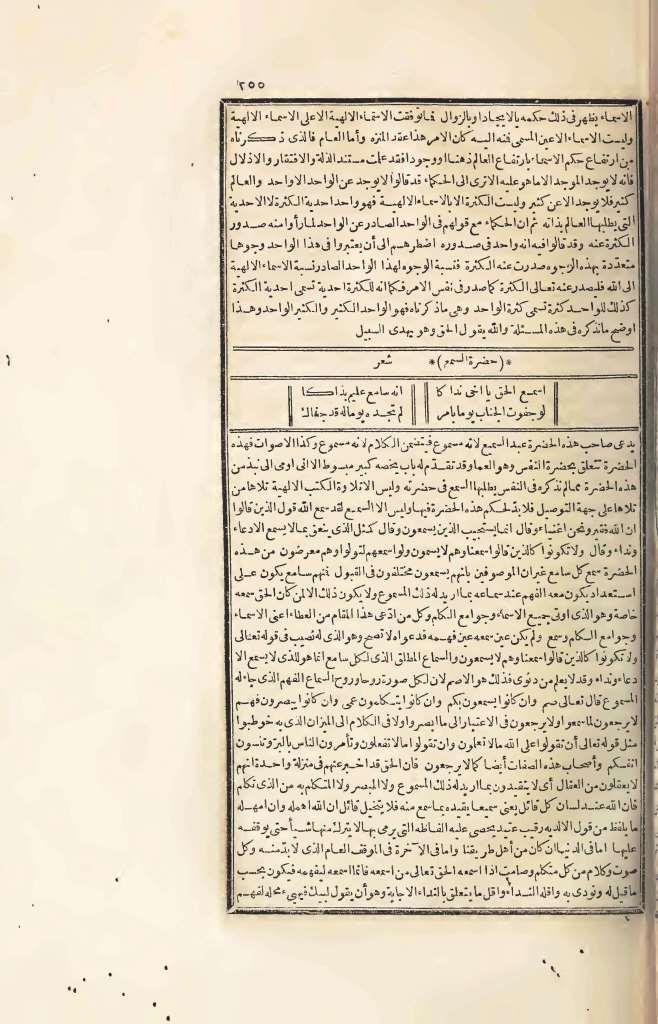 ٢٥٥
الاسماء يظهر فى ذلك حكمه بالايجاد او بالزوال فما توقفت الاسماء الالهية الا على الاسماء الالهية
وليست الاسماء الا عين المسمى فمنه اليه كان الامر هذا عقد المنزه وأما العام فالذى ذكرناه
من ارتفاع حكم الاسماء بارتفاع العالم ذهنا او وجودا فقد علمت مستند الذلة والافتقار والاذلال
فانه لا يوجد الموجد الا ما هو عليه الاترى الى الحكماء قد قالوا لا يوجد عن الواحد الا واحد والعالم
كثير فلا يوجد الا عن كثير وليست الكثرة الا الاسماء الالهية فهو واحد احدية الكثرة لا الاحدية
التى يطلبها العالم بذاته ثم ان الحكماء مع قولهم فى الواحد الصادر عن الواحد لما رأوا منه صدور
الكثرة عنه وقد قالوا فيه انه واحد فى صدوره اضطرهم الى أن يعتبروا فى هذا الواحد وجوها
متعددة بهذه الوجوه صدرت عنه الكثرة فنسبة الوجوه لهذا الواحد الصادر نسبة الاسماء الالهية
الى الله فليصدر عنه تعالى الكثرة كما صدر فى نفس الامر فكما انه للكثرة احدية تسمى احدية الكثرة
كذلك للواحد كثرة تسمى كثرة الواحد وهى ما ذكرناه فهو الواحد الكثير والكثير الواحد وهذا
اوضح ما نذكره فى هذه المسئلة والله يقول الحق وهو يهدى السبيل
*(حضرة السمع)* شعر
اسمع الحق يا اخى ندا كا انه سامع عليم بذاكا
لو جفوت الجناب يوما بامر لم تجده يوما له قد جفاك
يدعى صاحب هذه الحضرة عبد السميع لانه مسموع فيتضمن الكلام لانه مسموع وكذا الاصوات فهذه
الحضرة تتعلق بحضرة النفس وهو العماء وقد تقدم له باب يخصه كبير مبسوط الا انى اومى الى نبذ من
هذه الحضرة مما لم نذكره فى النفس يطلبها السمع فى حضرته وليس الا تلاوة الكتب الالهية تلاها من
تلاها على جهة التوصيل فلابد لحكم هذه الحضرة فيها وليس الا السميع لقد سمع الله قول الذين قالوا
ان الله فقير ونحن اغنياء وقال انما يستجيب الذين يسمعون وقال كمثل الذى ينعق بما لا يسمع الادعاء
ونداء وقال ولا تكونوا كالذين قالوا سمعنا وهم لا يسمعون ولو اسمعهم لتولوا وهم معرضون من هذه
الحضرة سمع كل سامع غير ان الموصوفين بانهم يسمعون مختلفون فى القبول فمنهم سامع يكون على
استعداد يكون معه الفهم عند سماعه بما اريد له ذلك المسموع ولا يكون ذلك الا لمن كان الحق سمعه
خاصة وهو الذى اوتى جميع الاسماء وجوامع الكلم وكل من ادعى هذا المقام من العطاء اعنى الاسماء
وجوامع الكلم وسمع ولم يكن عين سمعه عين فهمه فدعواه لا تصح وهو الذى له نصيب فى قوله تعالى
ولا تكونوا كالذين قالوا سمعنا وهم لا يسمعون والسماع المطلق الذى لكل سامع انما هو للذى لا يسمع الا
دعاء ونداء وقد لا يعلم من دنوى فذلك هو الاصم لان لكل صورة روحا وروح السماع الفهم الذى جاء له
المسموع قال تعالى صم وان كانوا يسمعون بكم وان كانوا يتكلمون عمى وان كانوا يبصرون فهم
لا يرجعون لما سمعوا ولا يرجعون فى الاعتبار الى ما ابصروا ولا فى الكلام الى الميزان الذى به خوطبوا
مثل قوله تعالى أن تقولوا على الله مالا تعلمون وان تقولوا ما لا تفعلون وتأمرون الناس بالبر وتنسون
انفسكم وأصحاب هذه الصفات أيضا كما لا يرجعون فان الحق قد اخبر عنهم فى منزلة واحدة انهم
لا يعقلون من العقال أى لا يتقيدون بما اريد له ذلك المسموع ولا المبصر ولا المتكلم به من الذى تكلم
فان الله عند لسان كل قائل يعنى سميعا يقيده بما سمع منه فلا يتخيل قائل ان الله اهمله وان امهله
ما يلفظ من قول الا لديه رقيب عتيد يحصى عليه الفاظه التى يرمى بها لا يترك منها شيأ حتى يوقفه
عليها اما فى الدنيا ان كان من أهل طريقنا واما فى الآخرة فى الموقف العام الذى لابد منه وكل
صوت وكلام من كل متكلم وصامت اذا اسمعه الحق تعالى من اسمعه فانما اسمعه ليفهمه فيكون بحسب
ما قيل له ونودى به واقله النداء واقل ما يتعلق بالنداء الاجابة وهو أن يقول لبيك فيهيىء محله لفهم